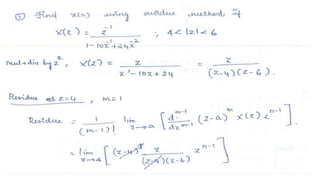 ① Find x(n) using residue method, if
X(z) = z⁻¹ / (1 - 10z⁻¹ + 24z⁻²) ; 4 < |z| < 6
mul & div by z², X(z) = z / (z² - 10z + 24) = z / ((z-4)(z-6)).
Residue at z=4, m=1
Residue = 1/(m-1)! lim z→a [ d^(m-1)/dz^(m-1) (z-a)^m X(z) z^(n-1) ]
= lim z→4 [ (z-4) z / ((z-4)(z-6)) z^(n-1) ]